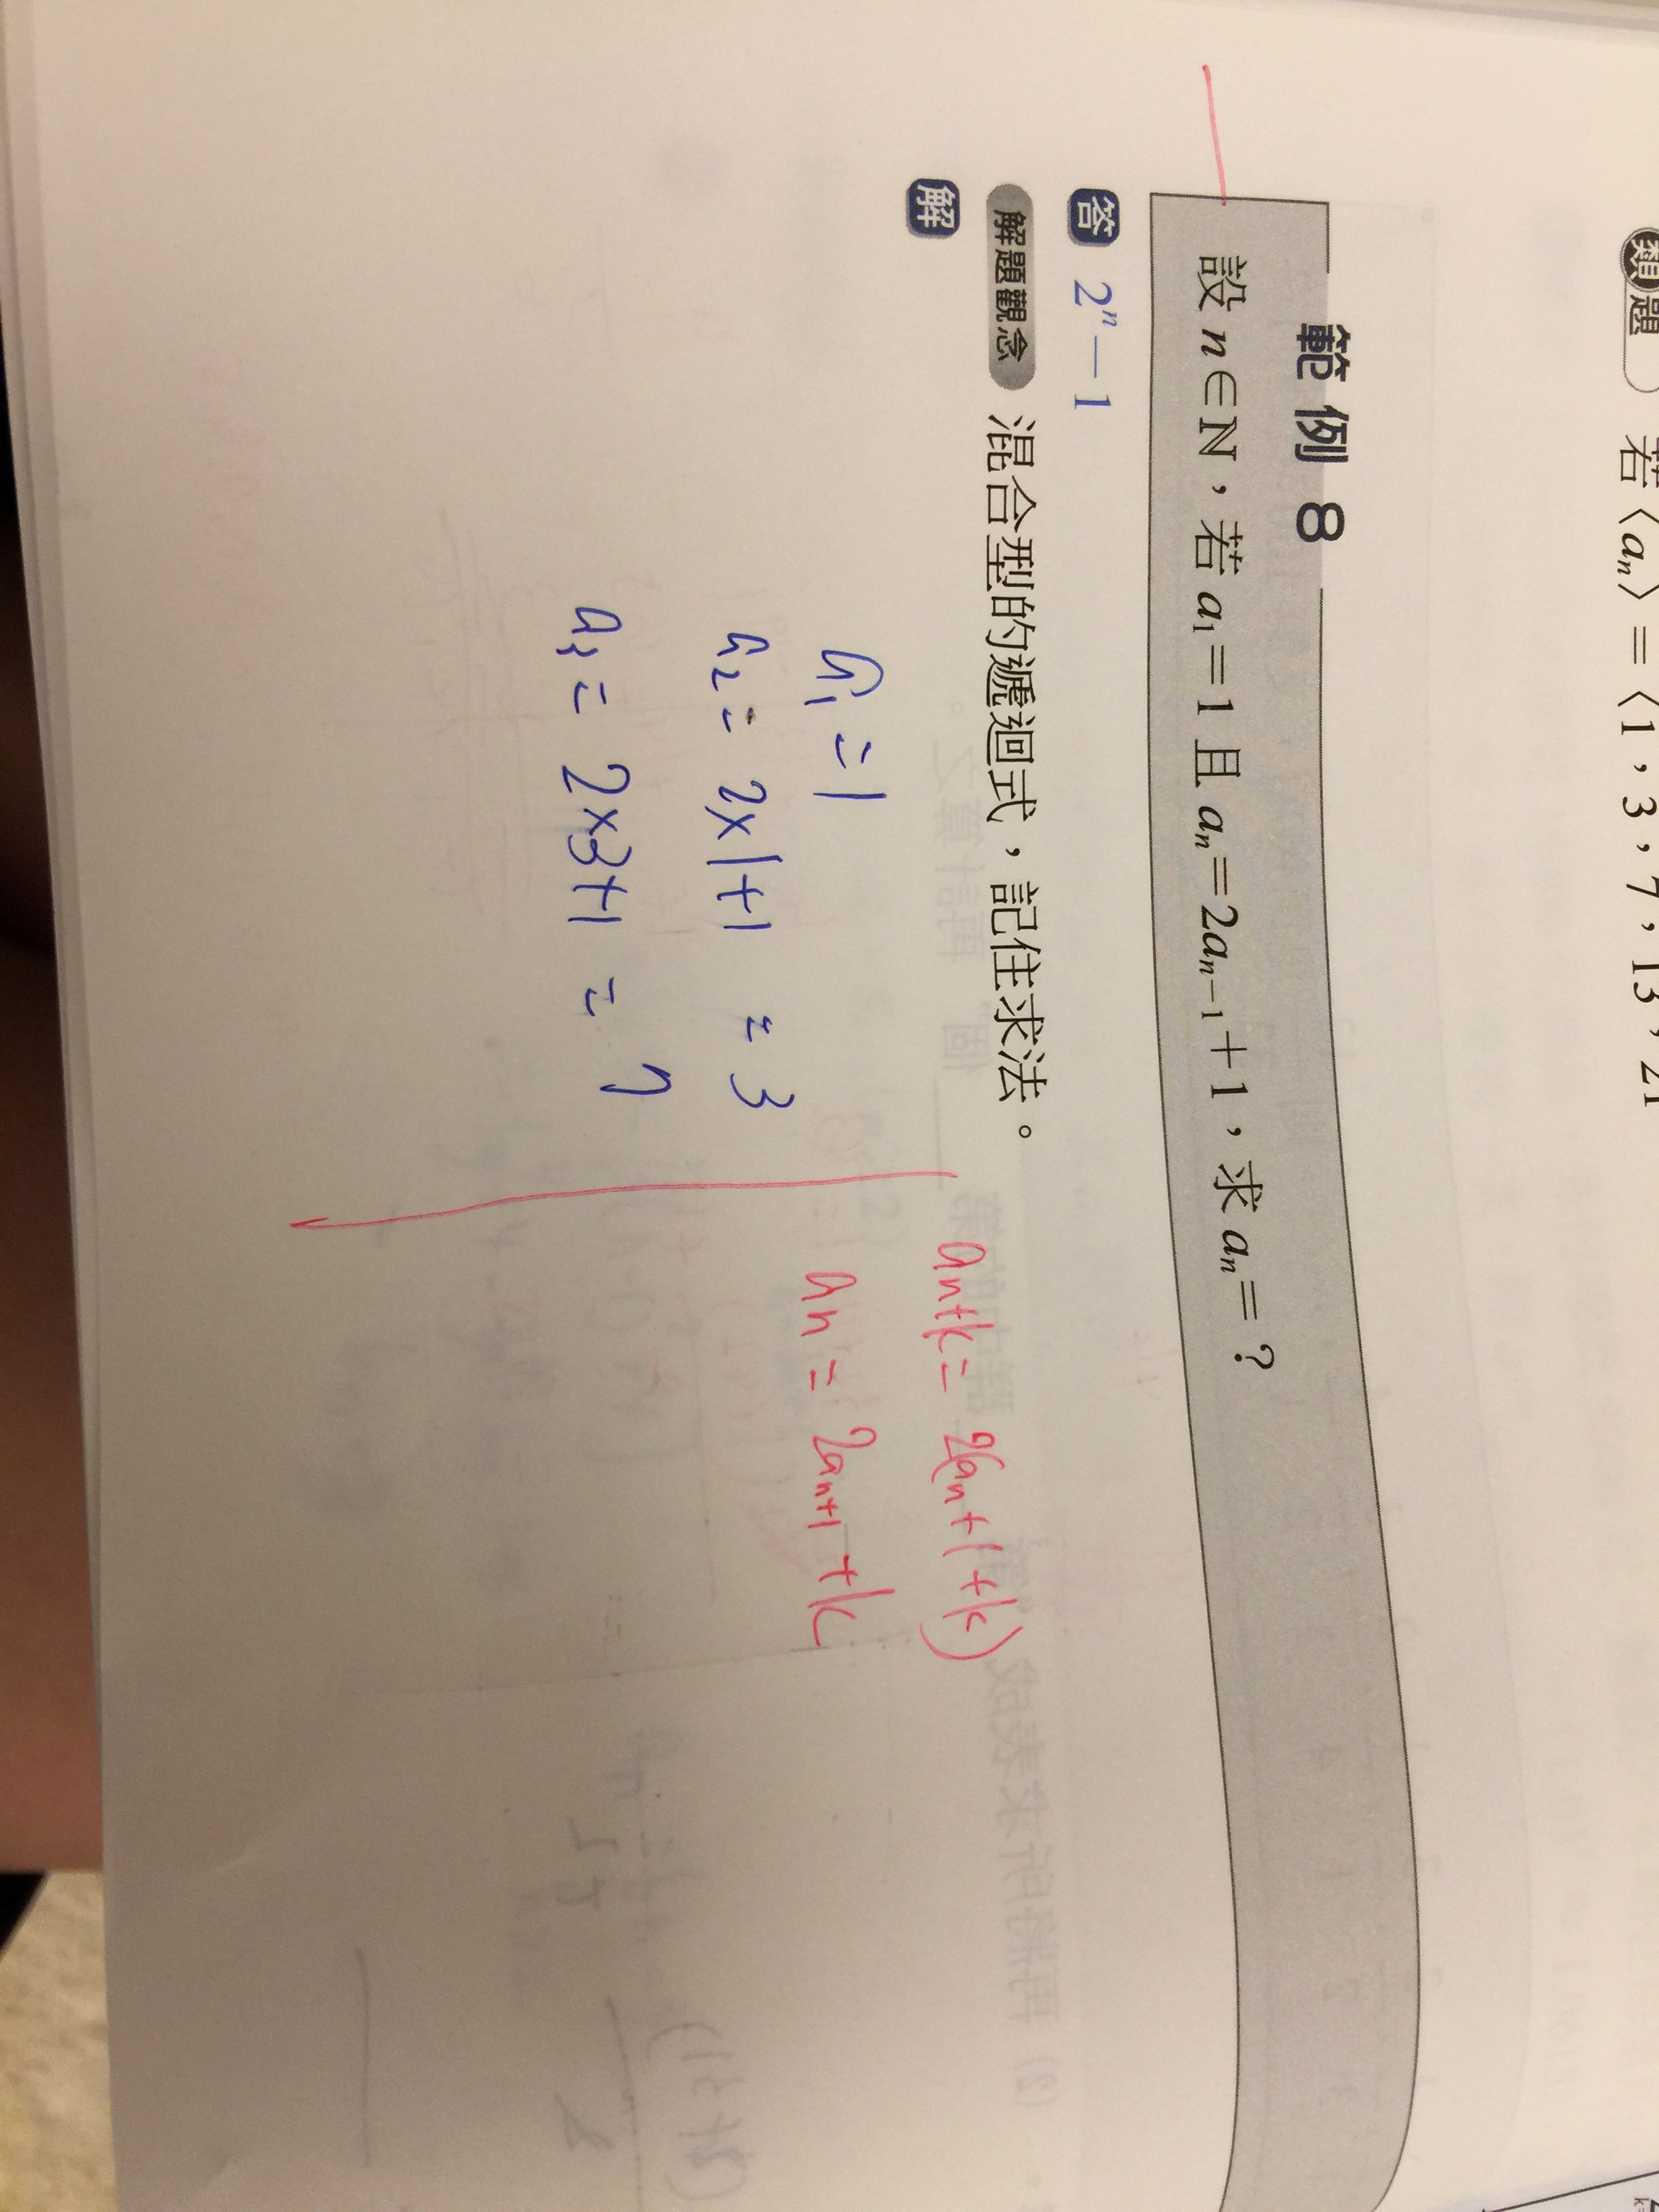 類題 若⟨aₙ⟩=⟨1,3,7,13,21
範例 8
設 n∈ℕ,若 a₁=1 且 aₙ=2aₙ₋₁+1,求 aₙ=?
答 2ⁿ-1
解題觀念 混合型的遞迴式,記住求法。
解
a₁=1
a₂=2×1+1 =3
a₃=2×3+1 =7
an+k=2(an+1+k)
an=2an+1+k